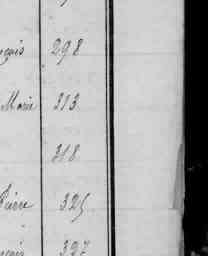 çois 298
Marie 313
318
Pierre 325
çois 327